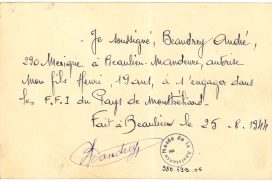 Je soussigné, Beaudrey André,
290 Mexique à Beaulieu-Mandeure, autorise
mon fils Henri, 19 ans, à s'engager dans
les F.F.I du Pays de Montbéliard.
Fait à Beaulieu le 25-8.1944
Beaudrey